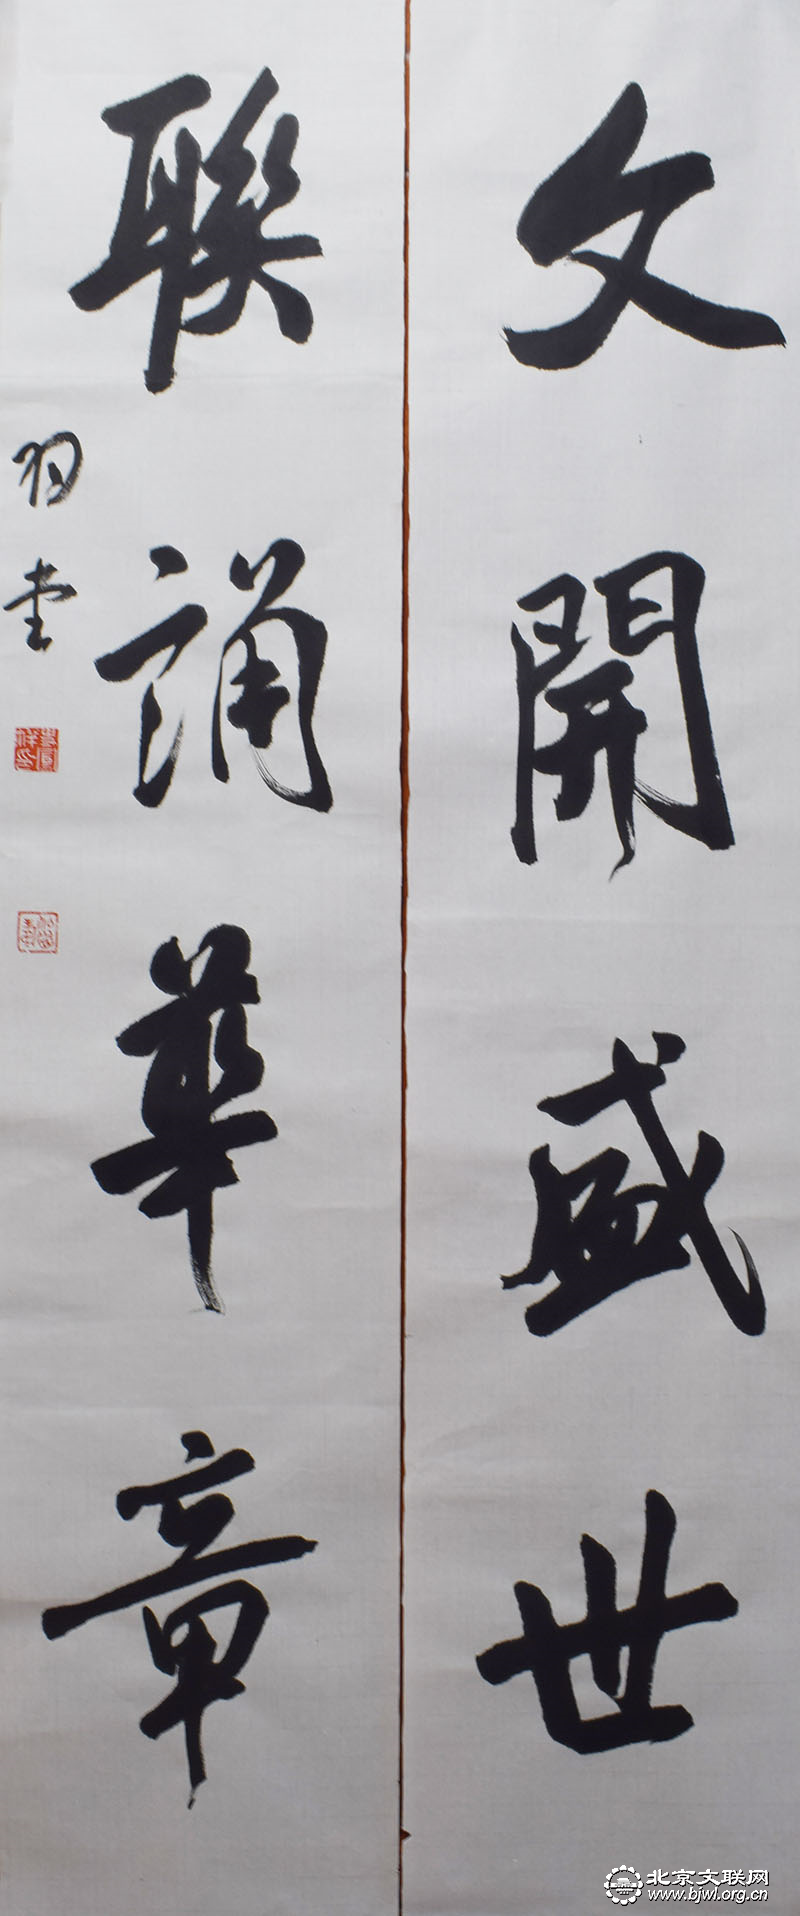 文開盛世
聯誦華章
羽堂
北京文联网
www.bjwl.org.cn